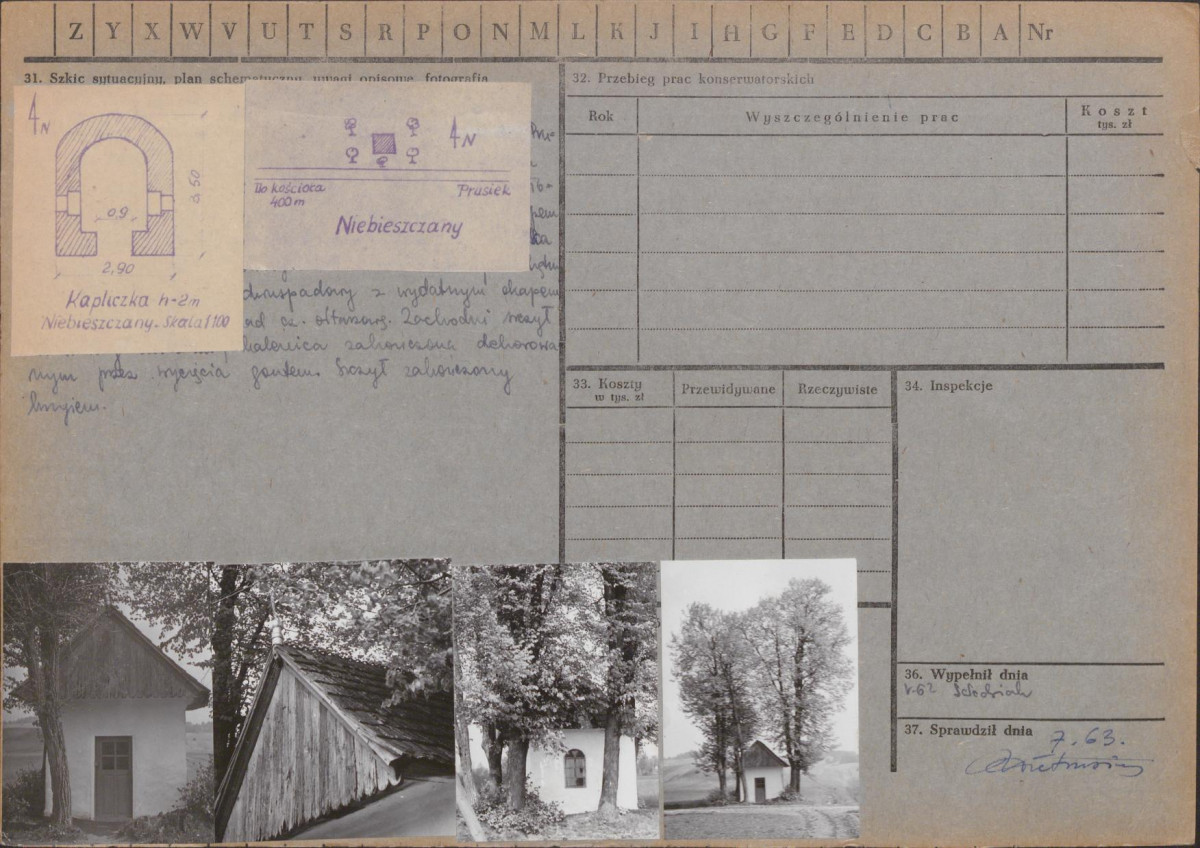 Z Y X W V U T S R P O N M L K J I H G F E D C B A Nr
31. Szkic sytuacyjny, plan schematyczny, uwagi opisowe, fotografia
N
0,9
3,50
2,90
Kapliczka h-2m
Niebieszczany. Skala 1:100
N
Do kościoła
400 m
Prusiek
Niebieszczany
dwuspadowy z wydatnym okapem
ad cz. ołtarzową. Zachodni szczyt
zakończona dekorowa
nym przez wycięcia gontem. Szczyt zakończony
krzyżem.
32. Przebieg prac konserwatorskich
Rok
Wyszczególnienie prac
Koszt
tys. zł
33. Koszty
w tys. zł
Przewidywane
Rzeczywiste
34. Inspekcje
36. Wypełnił dnia
37. Sprawdził dnia
7.63.